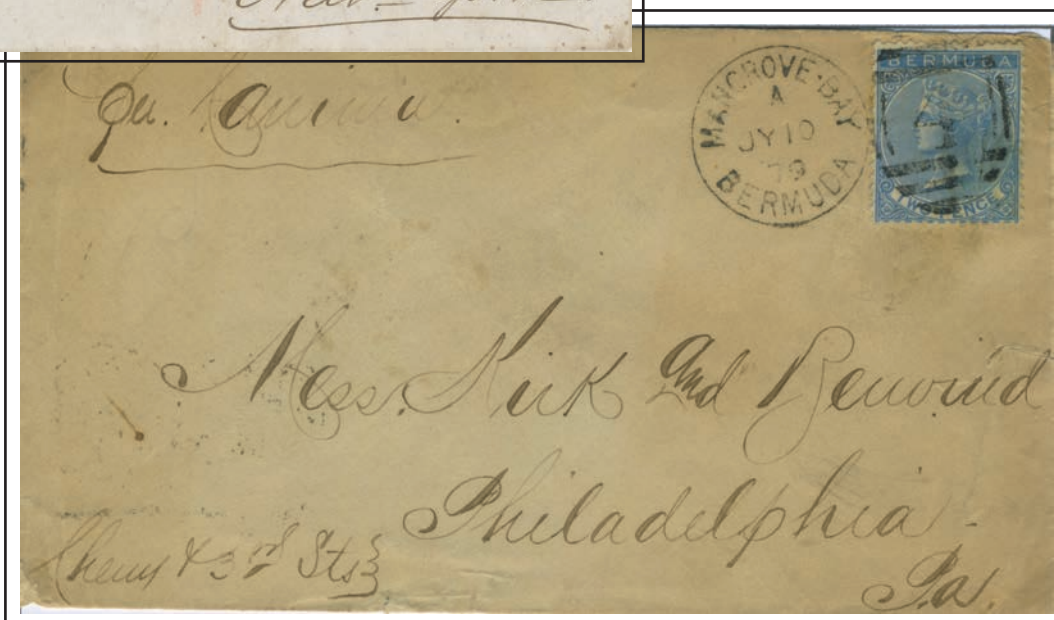 New York
Per. Canima.
MANGROVE-BAY
A
JY 10
79
BERMUDA
BERMUDA
TWO PENCE
Mess. Kirk and Berwind
Philadelphia -
Cherry & 3rd Sts
Pa.